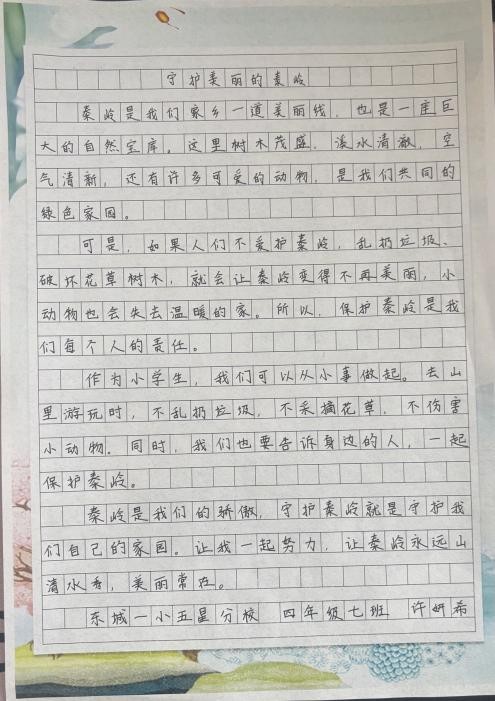 守护美丽的秦岭
秦岭是我们家乡一道美丽线，也是一座巨
大的自然宝库。这里树木茂盛，溪水清澈，空
气清新，还有许多可爱的动物，是我们共同的
绿色家园。
可是，如果人们不爱护秦岭，乱扔垃圾、
破坏花草树木，就会让秦岭变得不再美丽，小
动物也会失去温暖的家。所以，保护秦岭是我
们每个人的责任。
作为小学生，我们可以从小事做起。去山
里游玩时，不乱扔垃圾，不采摘花草，不伤害
小动物。同时，我们也要告诉身边的人，一起
保护秦岭。
秦岭是我们的骄傲，守护秦岭就是守护我
们自己的家园。让我一起努力，让秦岭永远山
清水秀，美丽常在。
东城一小五星分校 四年级七班 许妍希